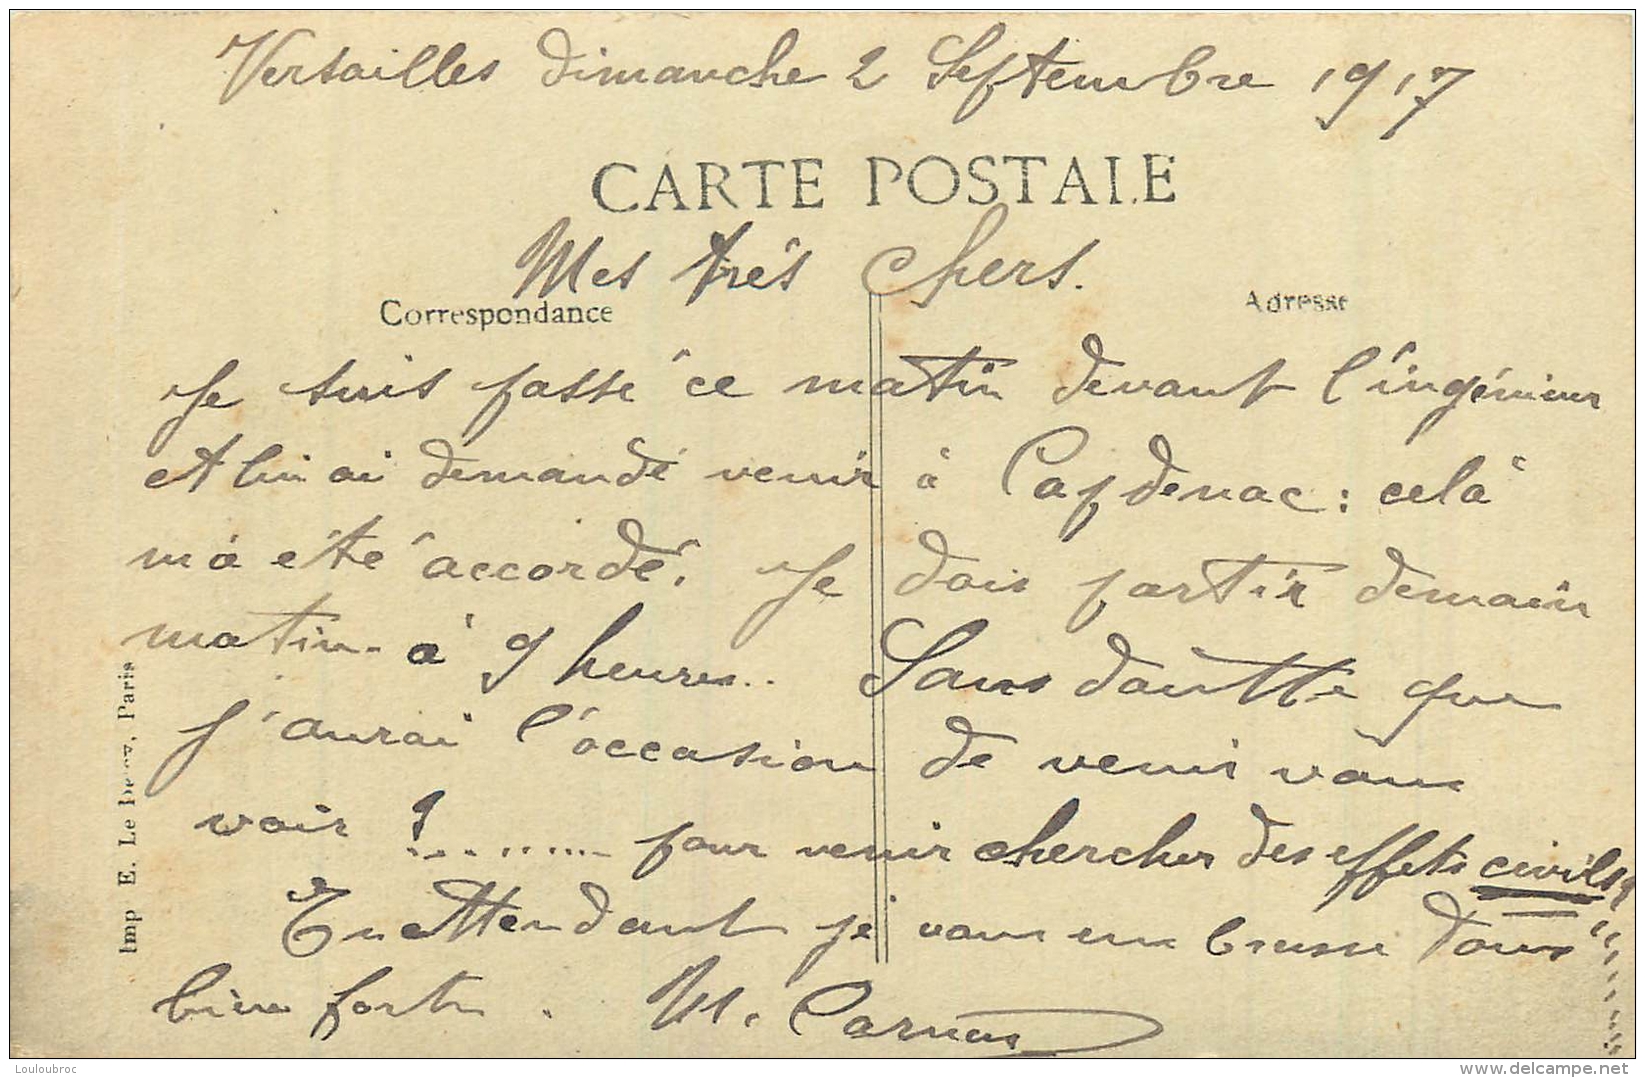 Versailles dimanche 2 Septembre 1917
CARTE POSTALE
Mes très chers.
Correspondance
Adresse
Je suis passé ce matin devant l'ingénieur
et lui ai demandé venir à Capdenac : celà
m'a été accordé. Je dois partir demain
matin à 9 heures.. Sans doutte que
j'aurai l'occasion de venir vous
voir ?......... pour venir chercher des effets civils
En attendant je vous embrasse tous
bien fort. M. Carnus
Imp E. Le Deley, Paris
Louloubroc
delcampe.net